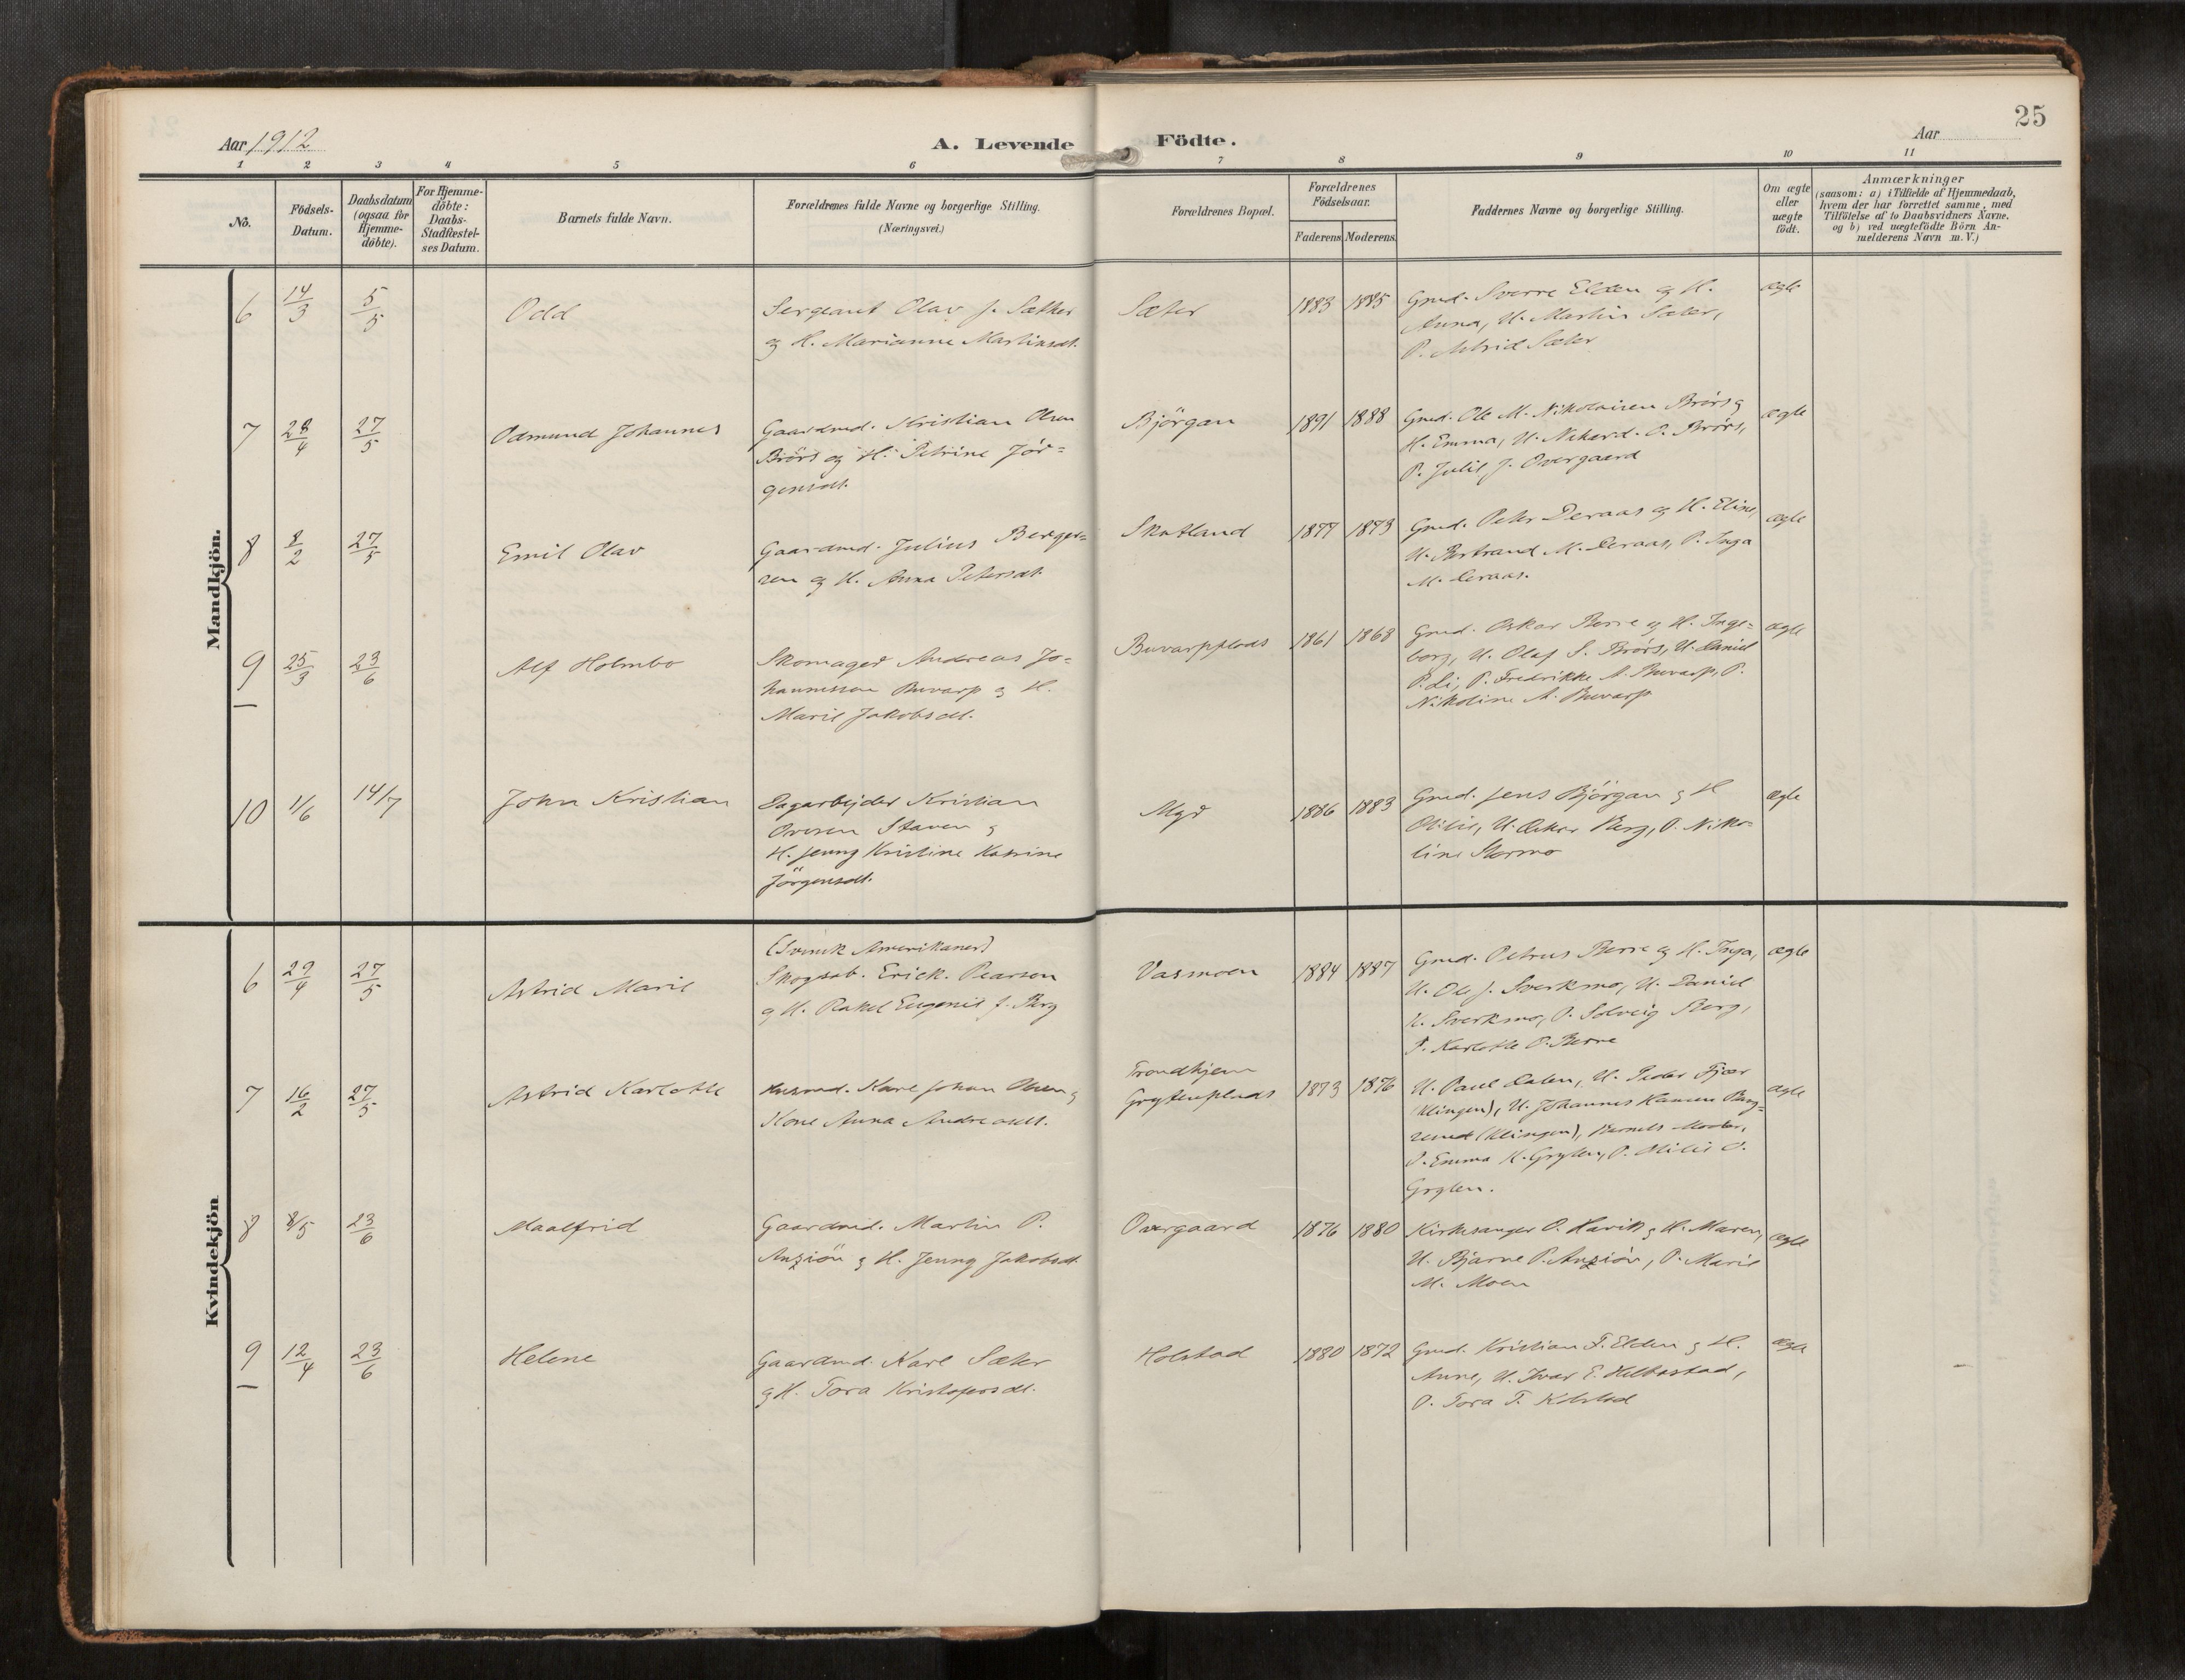 25
Aar 1912
A. Levende Fødte.
Aar
1 2 3 4 5 6 7 8 9 10 11
No.
Födsels-
Datum.
Daabsdatum
(ogsaa for
Hjemme-
döbte).
For Hjemme-
döbte:
Daabs-
Stadfæstel-
ses Datum.
Barnets fulde Navn.
Forældrenes fulde Navne og borgerlige Stilling.
(Næringsvei.)
Forældrenes Bopæl.
Forældrenes
Födselsaar.
Faderens Moderens.
Faddernes Navne og borgerlige Stilling.
Om ægte
eller
uægte
födt.
Anmærkninger
(saasom: a) i Tilfælde af Hjemmedaab,
hvem der har forrettet samme, med
Tilföielse af to Daabsvidners Navne.
og b) ved uægtefödte Börn An-
melderens Navn m. V.)
Mandkjön.
6
14/3
5/5
Odd
Sergeant Olav J. Sæther
og H. Marianne Martinsdt.
Sæter
1883
1885
Gmd. Sverre Elden og H.
Anna, U. Martin Sæter,
P. Astrid Sæter
ægte
7
28/4
27/5
Odmund Johannes
Gaardmd. Kristian Olsen
Brörs og H. Petrine Jör=
gensdt.
Björgan
1891
1888
Gmd. Ole M. Nikolaisen Brörs og
H. Emma, U. O. Brörs,
P. Julie J. Overgaard
ægte
8
8/2
27/5
Emil Olav
Gaardmd. Julius Berger=
sen og H. Anna Petersdt.
Skotland
1877
1873
Gmd. Peter Deraas og H. Elise,
U. Bertrand M. Deraas, P. Inga
M. Deraas.
ægte
9
25/3
23/6
Alf Holmbo
Skomager Andreas Jo=
hannessen Buvarp og H.
Marie Jakobsdt.
Buvarpplads
1861
1868
Gmd. Oskar Berre og H. Inge=
borg, U. Olaf S. Brörs, U. Daniel
P. Li, P. Fredrikke A. Buvarp, P.
Nikoline A. Buvarp
ægte
10
1/6
14/7
John Kristian
Dagarbejder Kristian
Ovesen Staven og
H. Jenny Kristine Katrine
Jörgensdt.
Myr
1886
1883
Gmd. Jens Björgan og H
Otilie, U. Oskar Berg, P. Niko=
line Stormo
ægte
Kvindekjön
6
29/4
27/5
Astrid Marie
(Svensk Amerikaner)
Skogsab. Erick Pearson
og H. Rakel Eugenie J. Berg
Vasmoen
1884
1887
Gmd. Petrus Berre og H. Inga,
U. Ole J. Sverkmo, U. Daniel
K. Sverkmo, P. Solveig Berg,
P. Karlotte P. Berre
ægte
7
16/2
27/5
Astrid Karlotte
Husmd. Karl Johan Olsen og
Kone Anna Andreasdt.
Trondhjem
Gryteuplads
1873
1876
U. Paul Dalen, U. Peder Fjær
(Klingen), U. Johannes Hansen
(Klingen), Barnets Moder,
P. Emma K. Gryten, P. Otilie O.
Gryten.
ægte
8
8/5
23/6
Maalfrid
Gaardmd. Martin P.
Anziön og H. Jenny Jakobsdt
Overgaard
1876
1880
Kirkesanger O. Havik og H. Maren,
U. Bjarne P. Anziön, P. Marie
M. Moen
ægte
9
12/4
23/6
Helene
Gaardmd. Karl Sæter
og H. Tora Kristofersdt.
Holstad
1880
1872
Gmd. Kristian F. Elden og H.
Anne, U. Ivar E. Helbostad,
P. Tora T.
ægte